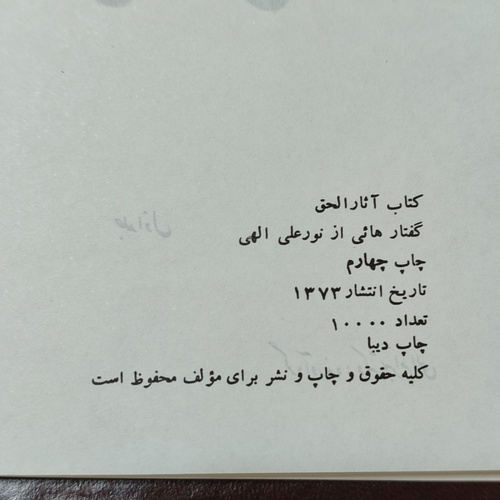 کتاب آثارالحق
گفتار هائی از نورعلی الهی
چاپ چهارم
تاریخ انتشار ۱۳۷۳
تعداد ۱۰۰۰۰
چاپ دیبا
کلیه حقوق و چاپ و نشر برای مؤلف محفوظ است